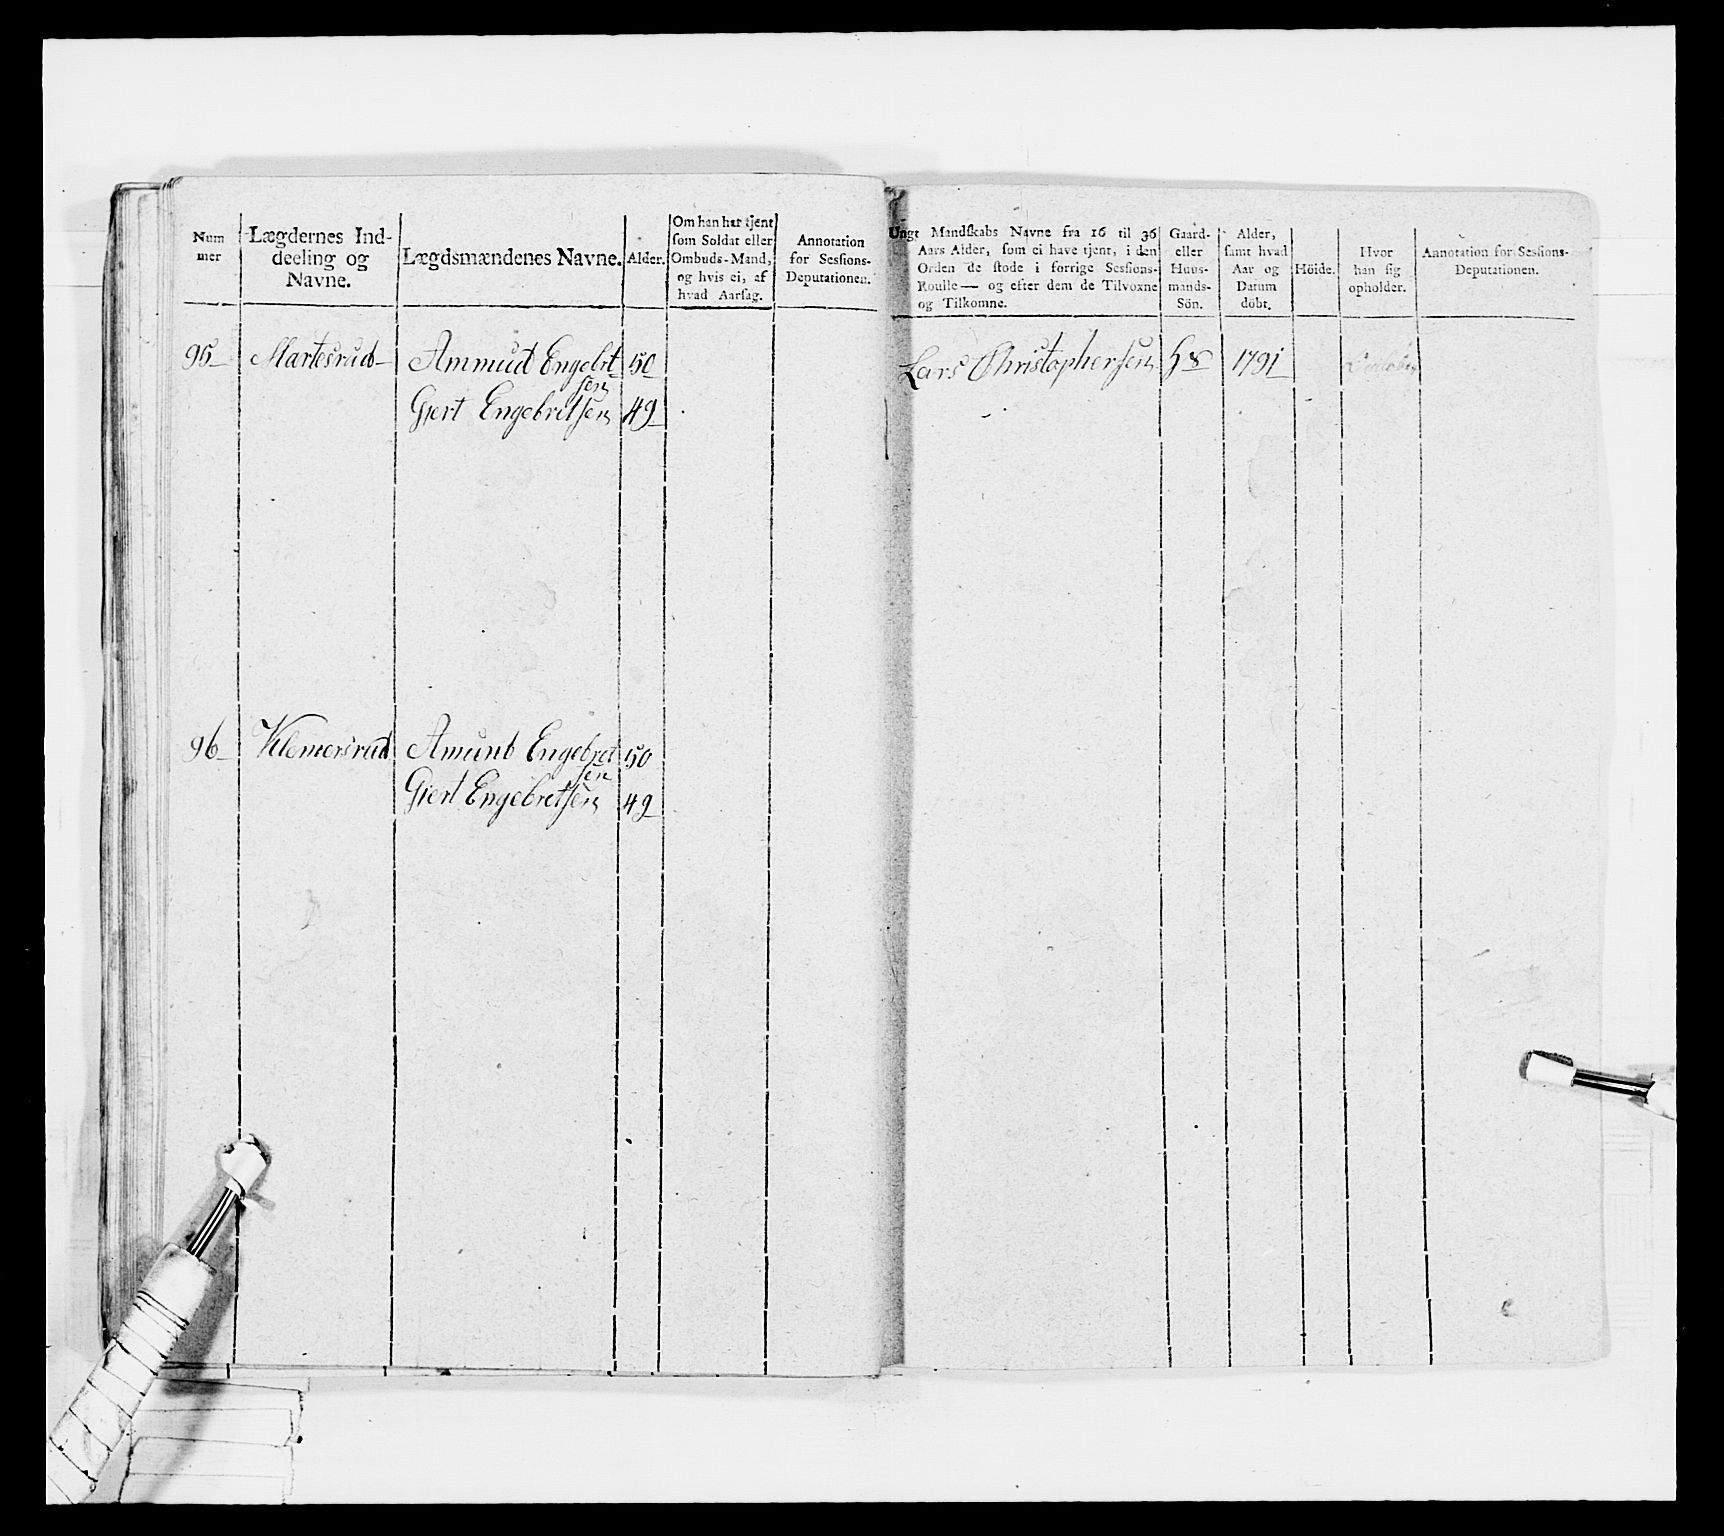 Num
mer
Lægdernes Ind-
deeling og
Navne.
Lægdsmændenes Navne.
Alder.
Om han har tjent
som Soldat eller
Ombuds-Mand,
og hvis ei, af
hvad Aarsag.
Annotation
for Sessions-
Deputationen.
Ungt Mandskabs Navne fra 16 til 36
Aars Alder, som ei have tjent, i den
Orden de stode i forrige Sessions-
Roulle — og efter dem de Tilvoxne
og Tilkomne.
Gaard-
eller
Huus-
mands-
Sön.
Alder,
samt hvad
Aar og
Datum
döbt.
Höide.
Hvor
han sig
opholder.
Annotation for Sessions-
Deputationen.
95 Martesrud Ammud Engebret 50 Lars Christophersen 1791
sen
Gjert Engebretsen 49
96 Klemersrud Amund Engebret 50
sen
Gjert Engebretsen 49